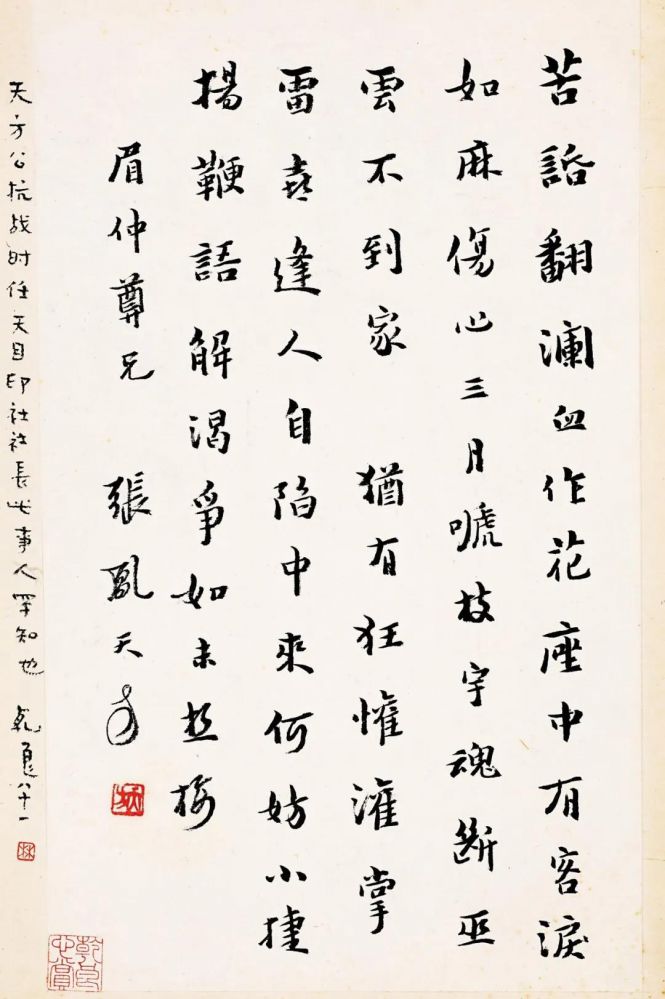 苦話翻瀾血作花座中有客淚
如麻傷心三月嗁枝宇魂斷巫
雲不到家 猶有狂懽灌掌
雷喜逢人自陷中來何妨小捷
揚鞭語解渴爭如未梅
眉仲尊兄 張鳳天方
天方公抗战时任天目印社社長此事人罕知也 乾良八十一
林
乾良心賞